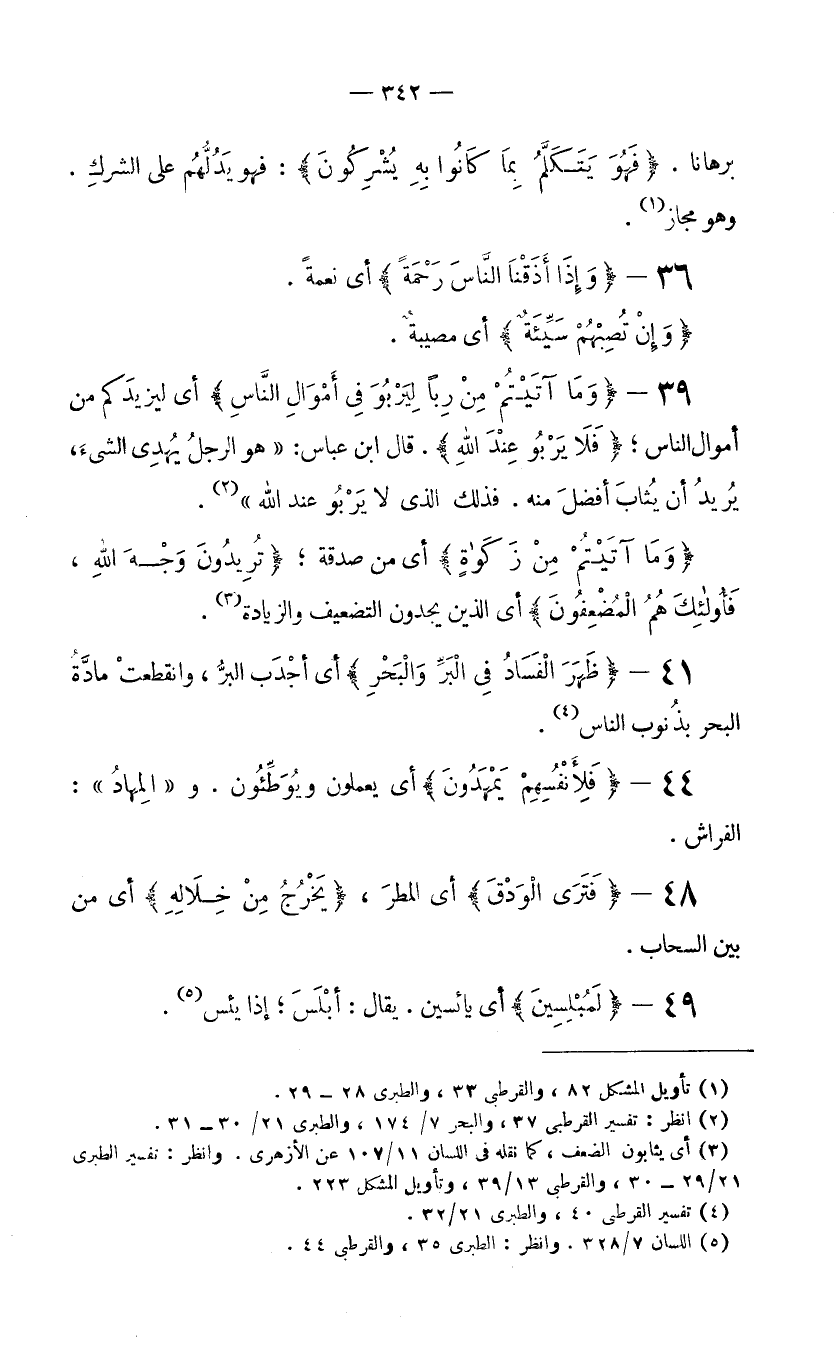 — ٣٤٢ —
برهانا . ﴿ فَهُوَ يَتَكَلَّمُ بِمَا كَانُوا بِهِ يُشْرِكُونَ ﴾ : فهو يَدُلُّهُم على الشركِ .
وهو مجاز(١) .
٣٦ — ﴿ وَإِذَا أَذَقْنَا النَّاسَ رَحْمَةً ﴾ أى نعمةً .
﴿ وَإِنْ تُصِبْهُمْ سَيِّئَةٌ ﴾ أى مصيبةٌ .
٣٩ — ﴿ وَمَا آتَيْتُمْ مِنْ رِباً لِيَرْبُوَ فِى أَمْوَالِ النَّاسِ ﴾ أى ليزيدَكم من
أموال الناس ؛ ﴿ فَلَا يَرْبُو عِنْدَ اللهِ ﴾ . قال ابن عباس: « هو الرجلُ يُهدِى الشىءَ،
يُريدُ أن يُثابَ أفضلَ منه . فذلك الذى لا يَرْبُو عند الله »(٢) .
﴿ وَمَا آتَيْتُمْ مِنْ زَكَوٰةٍ ﴾ أى من صدقة ؛ ﴿ تُرِيدُونَ وَجْهَ اللهِ ،
فَأُولٰئِكَ هُمُ الْمُضْعِفُونَ ﴾ أى الذين يجدون التضعيف والزيادة(٣) .
٤١ — ﴿ ظَهَرَ الْفَسَادُ فِى الْبَرِّ وَالْبَحْرِ ﴾ أى أجْدَب البرُّ ، وانقطعتْ مادَّةُ
البحر بذُنوب الناس(٤) .
٤٤ — ﴿ فَلِأَنْفُسِهِمْ يَمْهَدُونَ ﴾ أى يعملون ويُوَطِّئُون . و « المِهادُ » :
الفراش .
٤٨ — ﴿ فَتَرَى الْوَدْقَ ﴾ أى المطرَ ، ﴿ يَخْرُجُ مِنْ خِلَالِهِ ﴾ أى من
بين السحاب .
٤٩ — ﴿ لَمُبْلِسِينَ ﴾ أى يائسين . يقال : أَبْلَسَ ؛ إذا يئس(٥) .
(١) تأويل المشكل ٨٢ ، والقرطبى ٣٣ ، والطبرى ٢٨ — ٢٩ .
(٢) انظر : تفسير القرطبى ٣٧ ، والبحر ٧/ ١٧٤ ، والطبرى ٢١/ ٣٠ — ٣١ .
(٣) أى يثابون الضعف ، كما نقله فى اللسان ١٠٧/١١ عن الأزهرى . وانظر : تفسير الطبرى
٢٩/٢١ — ٣٠ ، والقرطبى ٣٩/١٣ ، وتأويل المشكل ٢٢٣ .
(٤) تفسير القرطبى ٤٠ ، والطبرى ٣٢/٢١ .
(٥) اللسان ٣٢٨/٧ . وانظر : الطبرى ٣٥ ، والقرطبى ٤٤ .